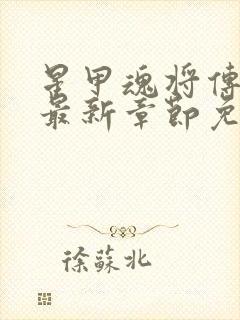 星甲魂将傳
最新章節免
徐蘇北